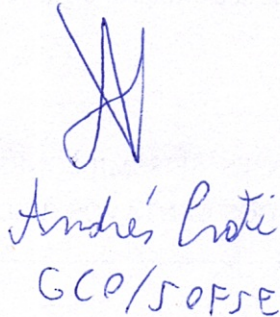 Andrés Croti
GCO/SOFSE